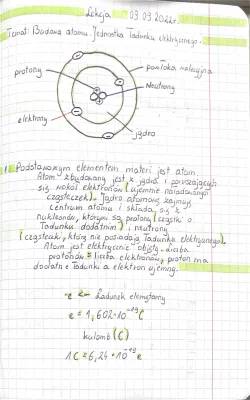 Lekcja 03.03.2022r.
Temat: Budowa atomu. Jednostka Ładunku elektrycznego.
protony
powłoka
Neutrony
elektrony
jądro
1. Podstawowym elementem materi jest atom
Atom zbudowany jest z jądra i
się wokół elektronów (ujemnie naładowanych
cząsteczek). Jądro atomowe zajmuje
centrum atomu i składa się z
nukleonów, którymi są protony (cząstki o
ładunku dodatnim) i neutrony
(cząsteczki, które nie posiadają ładunku elektrycznego).
Atom jest elektrycznie obojętny. Liczba
protonów = liczba elektronów, proton ma
dodatni Ładunek a elektron ujemny.
e ← Ładunek elementarny
e = 1,602·10⁻¹⁹C
kulomb (C)
1C = 6,24·10⁻¹⁹e